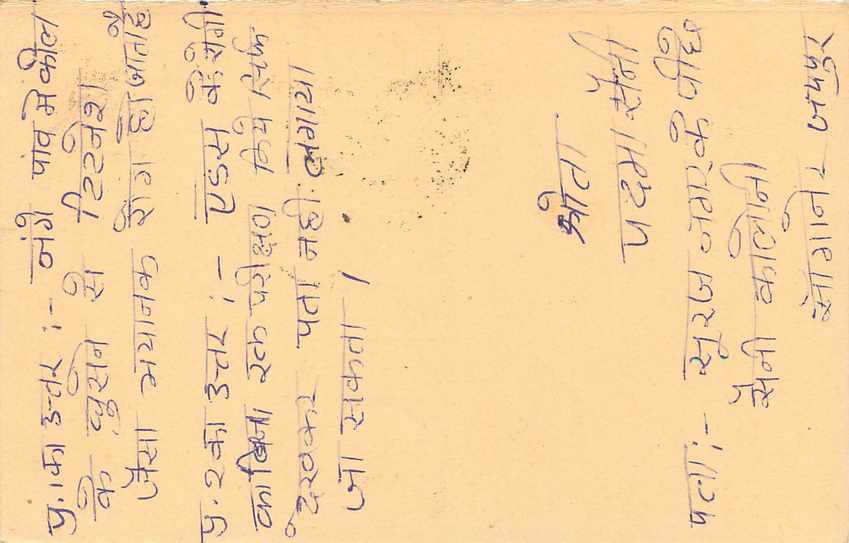 प्र.१का उत्तर :- नंगे पांव मे कील
के घुसने से टिटनेश
जैसा भयानक रोग हो जाता है
प्र.२का उत्तर :- एडस के रोगी
का बिना रक्त परीक्षण किये सिर्फ
देखकर पता नही लगाया
जा सकता ।
श्रोता
पदमा सैनी
पता :- सूरज नगर के पीछे
सैनी कोलोनी
सांगाने - जयपुर